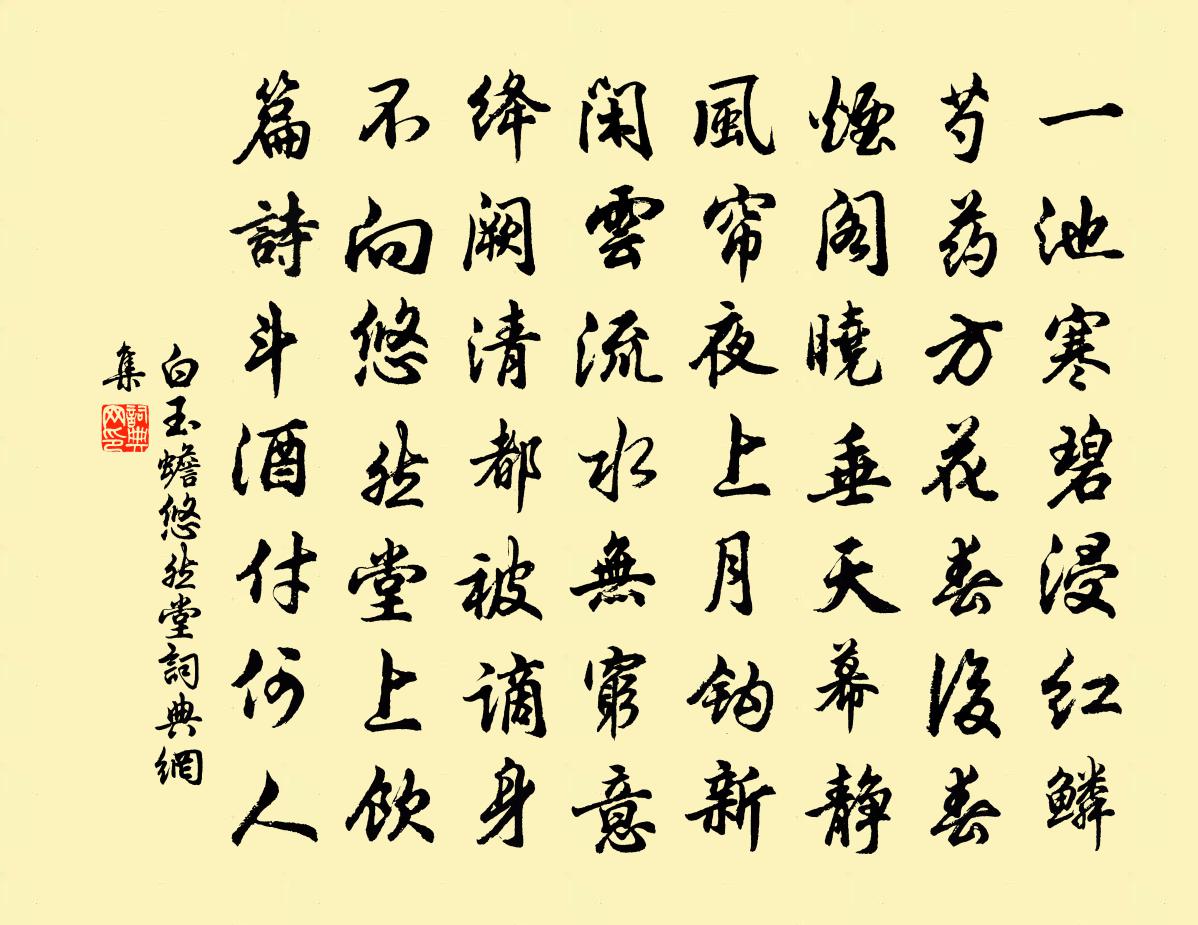 一池寒碧浸红鳞
芍药方花春後春
煙阁曉垂天幕静
風帘夜上月鈎新
闲雲流水無窮意
绛阙清都被谪身
不向悠然堂上飲
篇詩斗酒付何人
白玉蟾悠然堂詞典網
集
詞典网印